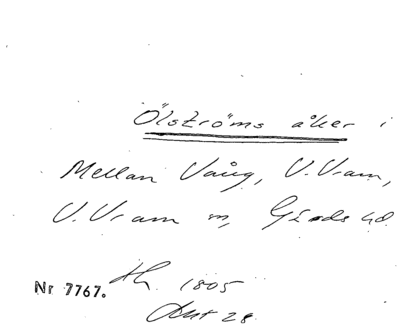 Ölströms åker i
Mellan Vång, V. Vram,
V. Vram sn, Gärds hd.
Nr 7767.
1805
Akt 28